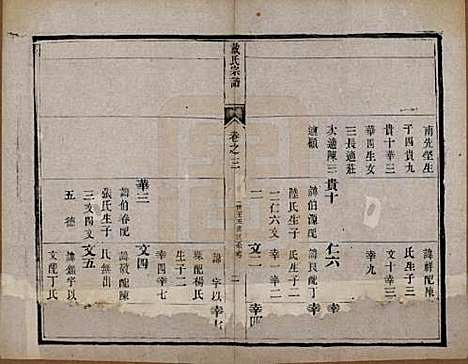 南先塋生
于四貴九
貴十華三
華四生女
三長適莊
次適陳三
適顧
諱祥配陳
氏生子三
文十幸三
幸九
貴十
諱伯源配
陸氏生子
一仁六文
二
仁六
諱良配丁
氏生子三
幸一幸二
幸四
文二
戴氏宗譜
卷之三
諱字以
葉配楊氏
生子二
幸四幸七
幸七
華三
諱伯春配
張氏生子
三文四文
五德
文四
諱敬配陳
氏無出
文五
諱顯字以
文配丁氏